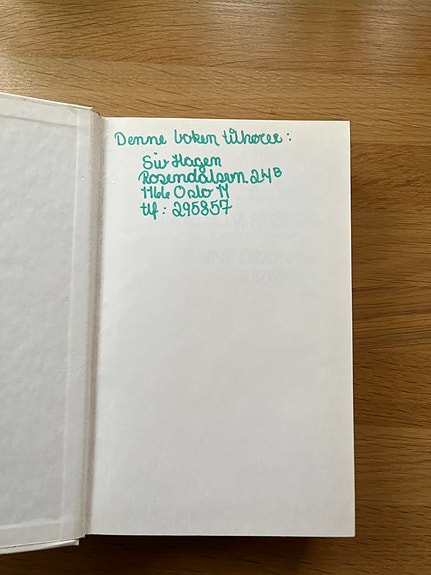 Denne boken tilhører:
Siv Hagen
Rosendalsvn. 24B
1166 Oslo 11
tlf: 295857